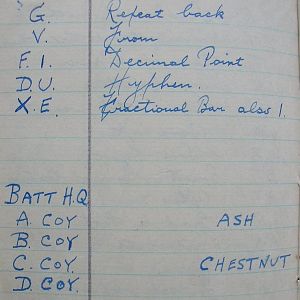 G. Repeat back
V. From
F.I. Decimal Point
D.U. Hyphen.
X.E. Fractional Bar also 1.
BATT H.Q
A. COY ASH
B. COY
C. COY. CHESTNUT
D. COY.